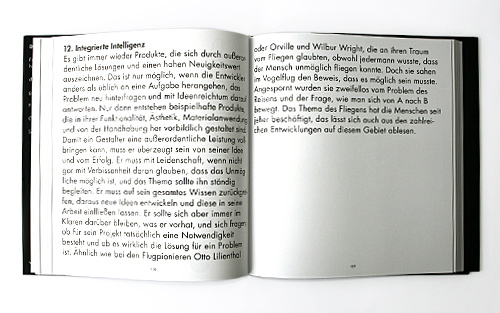 12. Integrierte Intelligenz
Es gibt immer wieder Produkte, die sich durch außeror-
dentliche Lösungen und einen hohen Neuigkeitswert
auszeichnen. Das ist nur möglich, wenn die Entwickler
anders als üblich an eine Aufgabe herangehen, das
Problem neu hinterfragen und mit Ideenreichtum darauf
antworten. Nur dann entstehen beispielhafte Produkte,
die in ihrer Funktionalität, Ästhetik, Materialanwendung
und von der Handhabung her vorbildlich gestaltet sind.
Damit ein Gestalter eine außerordentliche Leistung voll-
bringen kann, muss er überzeugt sein von seiner Idee
und vom Erfolg. Er muss mit Leidenschaft, wenn nicht
gar mit Verbissenheit daran glauben, dass das Unmög-
liche möglich ist, und das Thema sollte ihn ständig
begleiten. Er muss auf sein gesamtes Wissen zurückgrei-
fen, daraus neue Ideen entwickeln und diese in seine
Arbeit einfließen lassen. Er sollte sich aber immer im
Klaren darüber bleiben, was er vorhat, und sich fragen,
ob für sein Projekt tatsächlich eine Notwendigkeit
besteht und ob es wirklich die Lösung für ein Problem
ist. Ähnlich wie bei den Flugpionieren Otto Lilienthal
oder Orville und Wilbur Wright, die an ihren Traum
vom Fliegen glaubten, obwohl jedermann wusste, dass
der Mensch unmöglich fliegen konnte. Doch sie sahen
im Vogelflug den Beweis, dass es möglich sein musste.
Angespornt wurden sie zweifellos vom Problem des
Reisens und der Frage, wie man sich von A nach B
bewegt. Das Thema des Fliegens hat die Menschen seit
jeher beschäftigt, das lässt sich auch aus den zahlrei-
chen Entwicklungen auf diesem Gebiet ablesen.